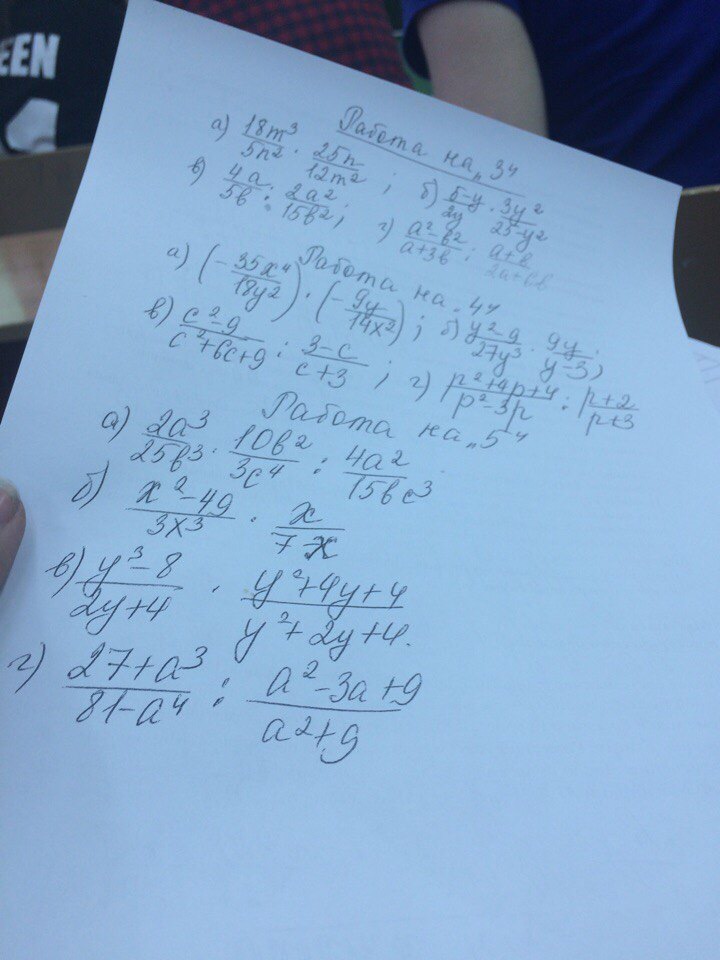 EEN
Работа на „3“
а) 18m³/5n² · 25n/12m² ; б) 5-y/2y · 3y²/25-y²
в) 4a/5b : 2a²/15b² ; г) a²-b²/a+3b : a+b/
Работа на „4“
а) (-35x⁴/18y²) · (-9y/14x²) ; б) y²-9/27y³ · 9y/y-3 ;
в) c²-9/c²+6c+9 : 3-c/c+3 ; г) p²+4p+4/p²-3p : p+2/p+3
Работа на „5“
а) 2a³/25b³ · 10b²/3c⁴ : 4a²/15bc³
б) x²-49/3x³ · x/7-x
в) y³-8/2y+4 · y²+4y+4/y²+2y+4.
г) 27+a³/81-a⁴ : a²-3a+9/a²+9